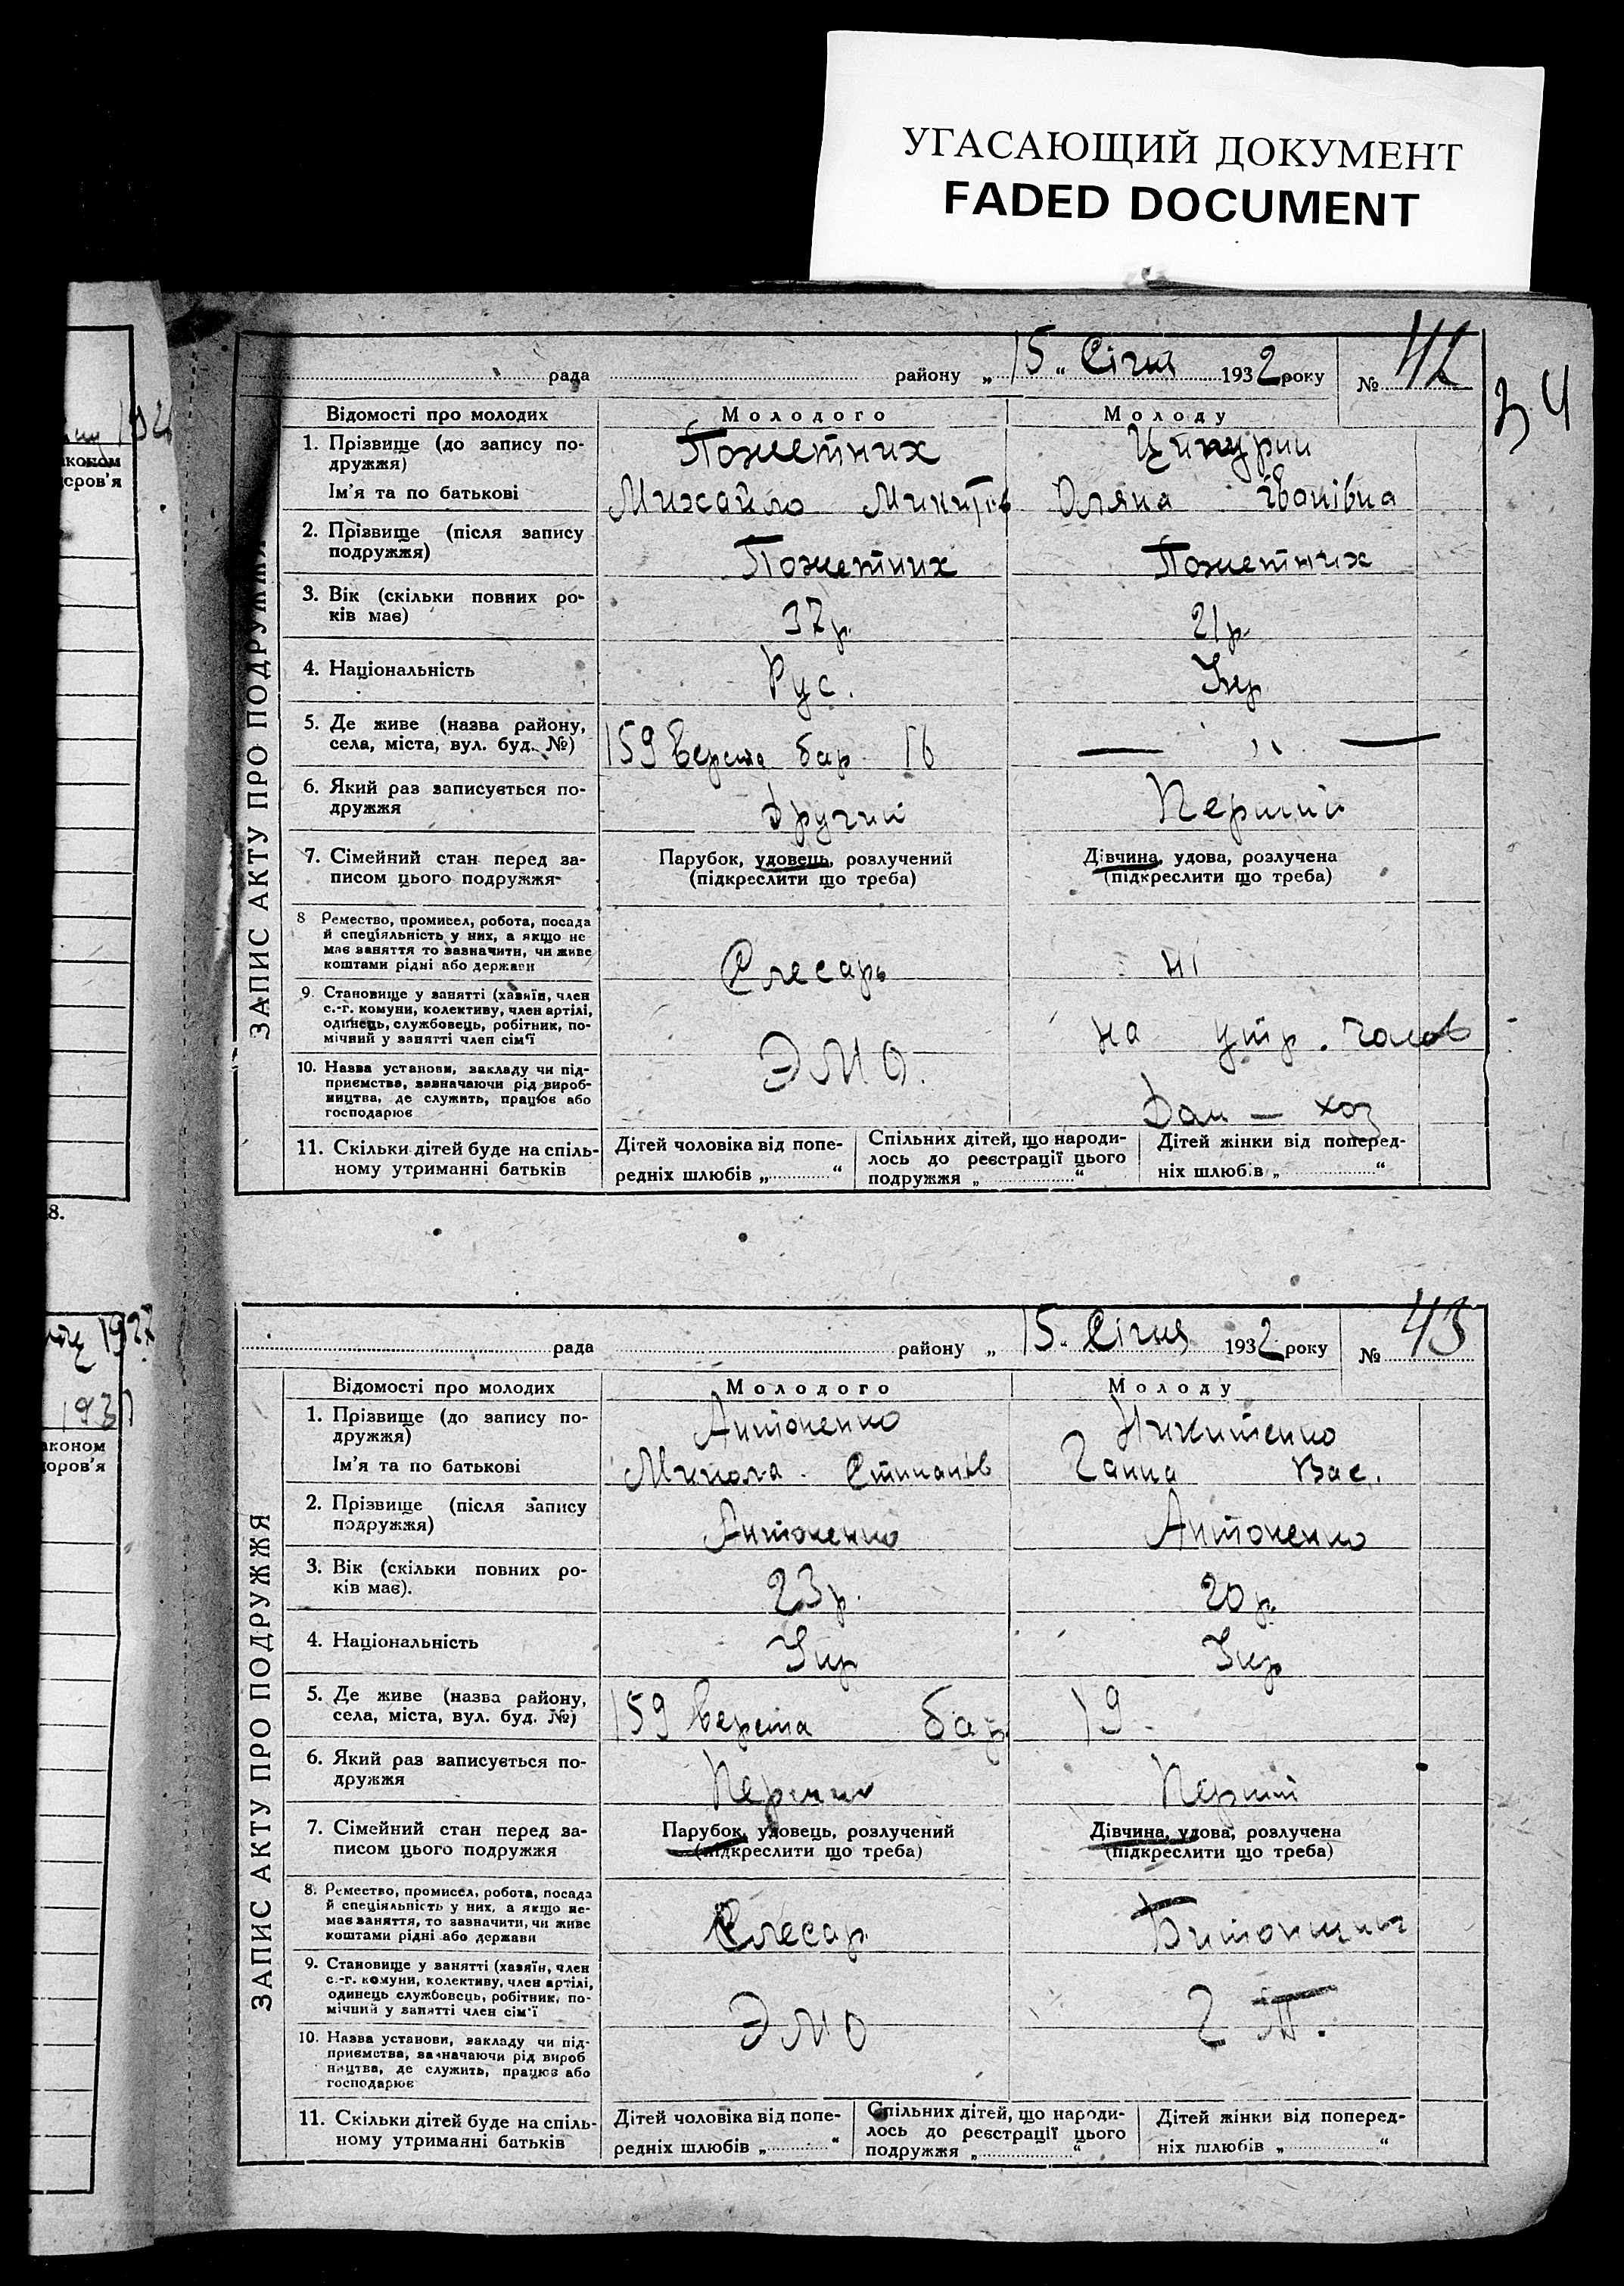 УГАСАЮЩИЙ ДОКУМЕНТ
FADED DOCUMENT
34
ЗАПИС АКТУ ПРО ПОДРУЖЖЯ
рада района „15„ Січня 1932 року № 42
Відомості про молодих Молодого Молоду
1. Прізвище (до запису по-
дружжя) Пожетних
Ім'я та по батькові Михайло Микитов Оляна Іванівна
2. Прізвище (після запису
подружжя) Пожетних Пожетних
3. Вік (скільки повних ро-
ків має) 37 р. 21 р.
4. Національність Рус. Укр
5. Де живе (назва району,
села, міста, вул. буд. №) 159 верста бар 16 — „ —
6. Який раз записується по-
дружжя Другий Перший
7. Сімейний стан перед за- Парубок, удовець, розлучений Дівчина, удова, розлучена
писом цього подружжя (підкреслити що треба) (підкреслити що треба)
8 Ремество, промисел, робота, посада
й спеціяльність у них, а якщо не
має заняття то зазначити, чи живе
коштами рідні або держави Слесарь ні
9. Становище у занятті (хазяїн, член
с.-г. комуни, колективу, член артілі,
одинець, службовець, робітник, по-
мічний у занятті член сім'ї на утр. чолов
10. Назва установи, закладу чи під-
приємства, зазначаючи рід вироб-
ництва, де служить, працює або
господарює ЭМО. Дом — хоз
11. Скільки дітей буде на спіль-
ному утриманні батьків
Дітей чоловіка від попе-
редніх шлюбів „ “
Спільних дітей, що народи-
лось до реєстрації цього
подружжя „ “
Дітей жінки від поперед-
ніх шлюбів „ “
ЗАПИС АКТУ ПРО ПОДРУЖЖЯ
рада району „15„ Січня 1932 року № 43
Відомості про молодих Молодого Молоду
1. Прізвище (до запису по-
дружжя) Антоненко Никитенко
Ім'я та по батькові Микола Степанів Ганна Вас.
2. Прізвище (після запису
подружжя) Антоненко Антоненко
3. Вік (скільки повних ро-
ків має). 23 р. 20 р.
4. Національність Укр Укр
5. Де живе (назва району,
села, міста, вул. буд. №) 159 верста бар 19.
6. Який раз записується по-
дружжя Перший Перший
7. Сімейний стан перед за- Парубок, удовець, розлучений Дівчина, удова, розлучена
писом цього подружжя (підкреслити що треба) (підкреслити що треба)
8. Ремество, промисел, робота, посада
й спеціяльність у них, а якщо не-
має заняття, то зазначити, чи живе
коштами рідні або держави Слесар
9. Становище у занятті (хазяїн, член
с.-г. комуни, колективу, член артілі,
одинець службовець, робітник, по-
мічний у занятті член сім'ї ЭМО
10. Назва установи, закладу чи під-
приємства, зазначаючи рід вироб
ництва, де служить, працює або
господарює
11. Скільки дітей буде на спіль-
ному утриманні батьків
Дітей чоловіка від попе-
редніх шлюбів „ “
Спільних дітей, що народи-
лось до реєстрації цього
подружжя „ “
Дітей жінки від поперед-
ніх шлюбів „ “